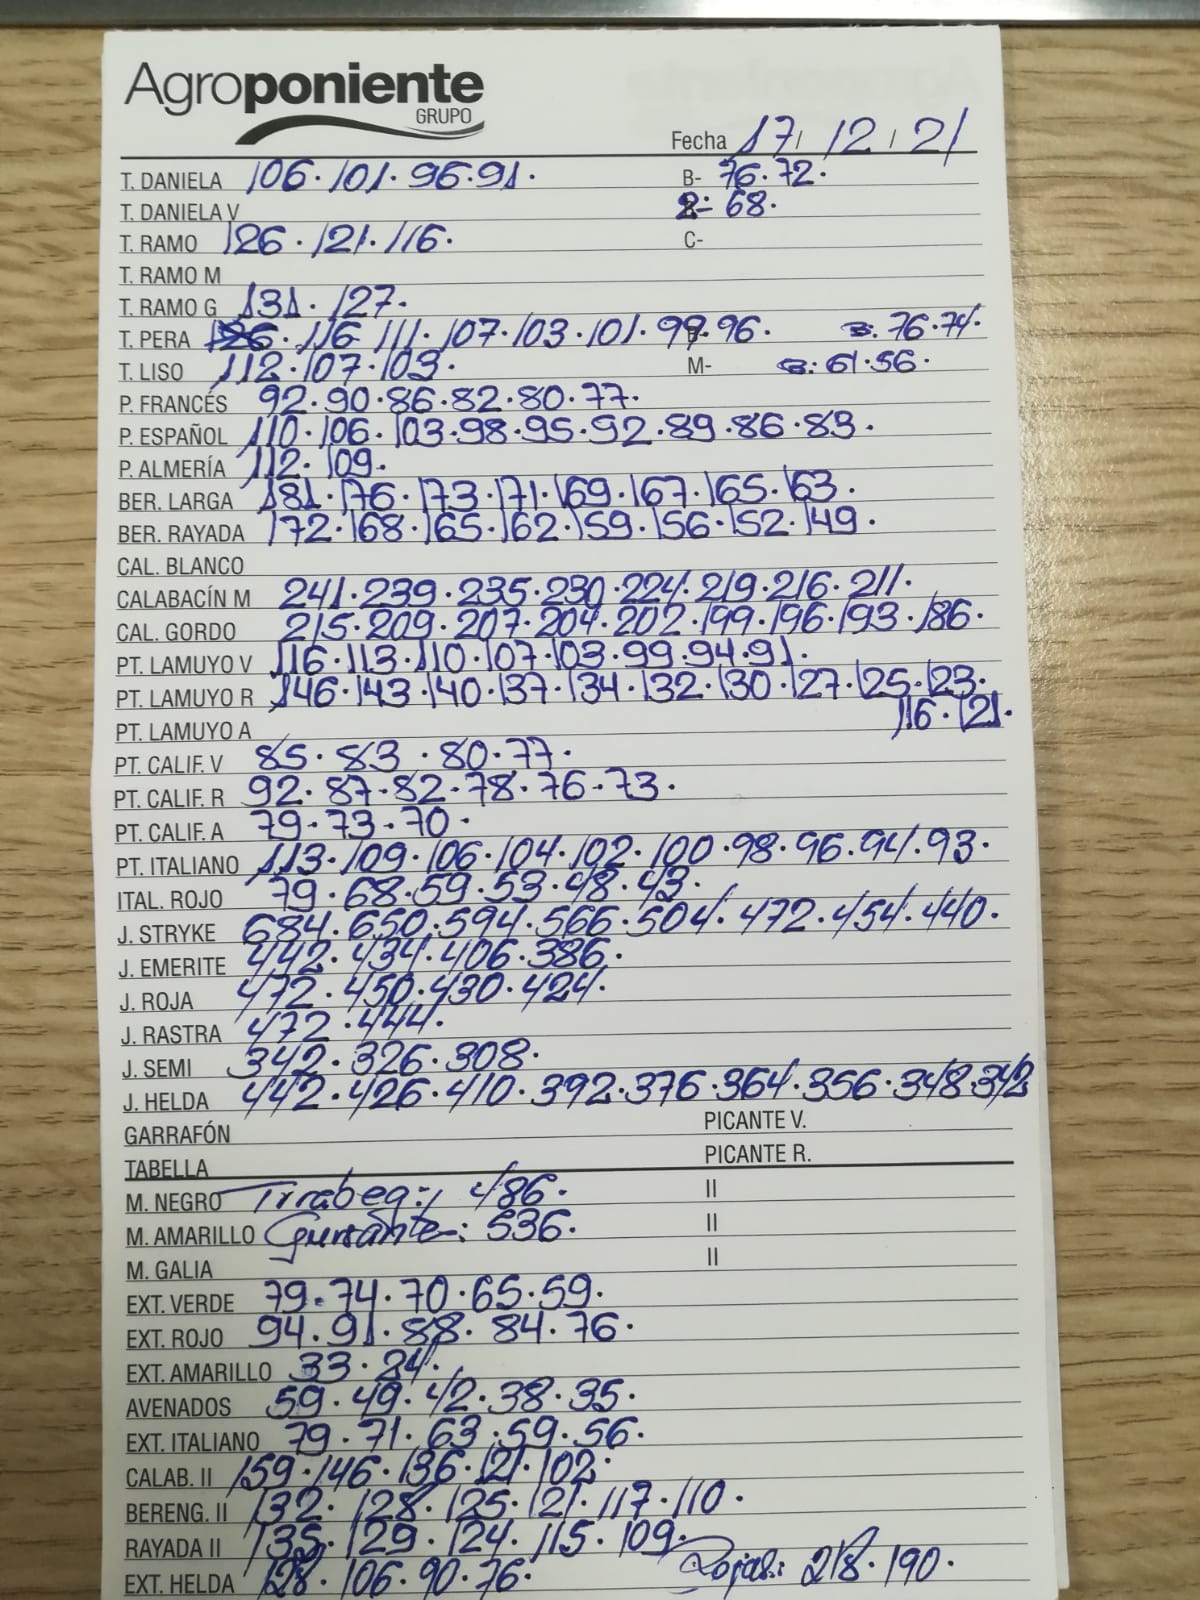 Agroponiente
GRUPO
Fecha 17/ 12 / 21
T. DANIELA 106. 101. 96. 91. B- 76. 72.
T. DANIELA V 2: 68.
T. RAMO 126. 121. 116. C-
T. RAMO M
T. RAMO G 131. 127.
T. PERA 116. 111. 107. 103. 101. 99. 96. B: 76. 74.
T. LISO 112. 107. 103. M- B: 61. 56.
P. FRANCÉS 92. 90. 86. 82. 80. 77.
P. ESPAÑOL 110. 106. 103. 98. 95. 92. 89. 86. 83.
P. ALMERÍA 112. 109.
BER. LARGA 181. 176. 173. 171. 169. 167. 165. 163.
BER. RAYADA 172. 168. 165. 162. 159. 156. 152. 149.
CAL. BLANCO
CALABACÍN M 241. 239. 235. 230. 224. 219. 216. 211.
CAL. GORDO 215. 209. 207. 204. 202. 199. 196. 193. 186.
PT. LAMUYO V 116. 113. 110. 107. 103. 99. 94. 91.
PT. LAMUYO R 146. 143. 140. 137. 134. 132. 130. 127. 125. 123.
PT. LAMUYO A 116. 121.
PT. CALIF. V 85. 83. 80. 77.
PT. CALIF. R 92. 87. 82. 78. 76. 73.
PT. CALIF. A 79. 73. 70.
PT. ITALIANO 113. 109. 106. 104. 102. 100. 98. 96. 94. 93.
ITAL. ROJO 79. 68. 59. 53. 48. 43.
J. STRYKE 684. 650. 594. 566. 504. 472. 454. 440.
J. EMERITE 442. 434. 406. 386.
J. ROJA 472. 450. 430. 424.
J. RASTRA 472. 444.
J. SEMI 342. 326. 308.
J. HELDA 442. 426. 410. 392. 376. 364. 356. 348. 342
GARRAFÓN PICANTE V.
TABELLA PICANTE R.
M. NEGRO Tirabeq: 486. II
M. AMARILLO Guisante: 536. II
M. GALIA II
EXT. VERDE 79. 74. 70. 65. 59.
EXT. ROJO 94. 91. 88. 84. 76.
EXT. AMARILLO 33. 24.
AVENADOS 59. 49. 42. 38. 35.
EXT. ITALIANO 79. 71. 63. 59. 56.
CALAB. II 159. 146. 136. 121. 102.
BERENG. II 132. 128. 125. 121. 117. 110.
RAYADA II 135. 129. 124. 115. 109.
EXT. HELDA 128. 106. 90. 76. Rojas: 218. 190.